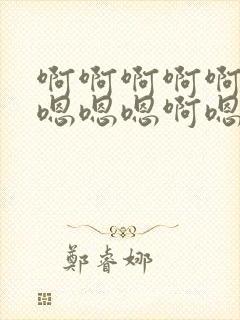 啊啊啊啊啊
嗯嗯嗯啊嗯
鄭睿娜